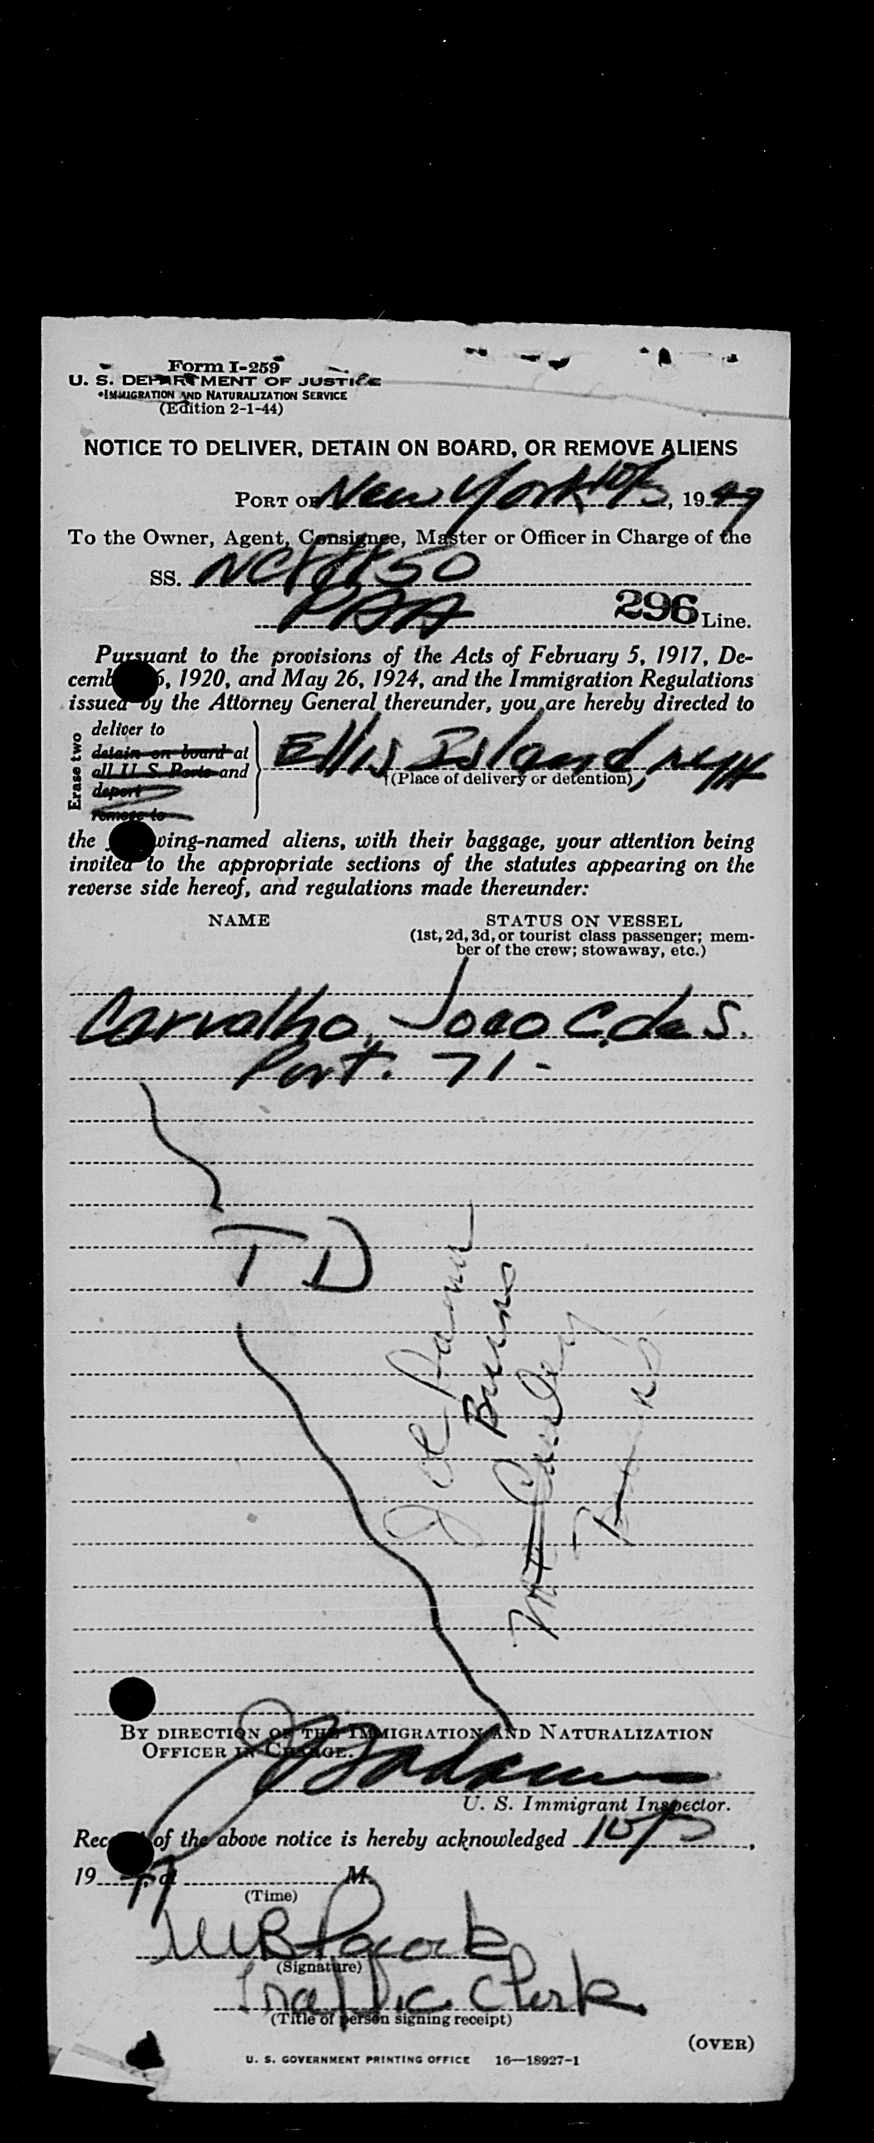 Form I-259
U. S. DEPARTMENT OF JUSTICE
IMMIGRATION AND NATURALIZATION SERVICE
(Edition 2-1-44)
NOTICE TO DELIVER, DETAIN ON BOARD, OR REMOVE ALIENS
PORT OF New York 10/5, 1949
To the Owner, Agent, Consignee, Master or Officer in Charge of the
SS. NC
PAA 296 Line.
Pursuant to the provisions of the Acts of February 5, 1917, De-
cemb 6, 1920, and May 26, 1924, and the Immigration Regulations
issued by the Attorney General thereunder, you are hereby directed to
Erase two
deliver to
detain on board at
all U S Ports and
deport
remove to
Ellis Island, NYH
(Place of delivery or detention)
the wing-named aliens, with their baggage, your attention being
invited to the appropriate sections of the statutes appearing on the
reverse side hereof, and regulations made thereunder:
NAME STATUS ON VESSEL
(1st, 2d, 3d, or tourist class passenger; mem-
ber of the crew; stowaway, etc.)
Carvalho, Joao C. da S.
Port. 71-
TD
Joe
Burns
BY DIRECTION OF THE IMMIGRATION AND NATURALIZATION
OFFICER IN CHARGE.
U. S. Immigrant Inspector.
Rec of the above notice is hereby acknowledged 10/5,
19 49, at M.
(Time)
WB Pocock
(Signature)
Traffic Clerk
(Title of person signing receipt)
(OVER)
U. S. GOVERNMENT PRINTING OFFICE 16—18927-1